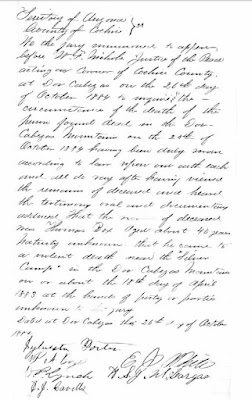 Territory of Arizona }
County of Cochise } ss
We the jury summoned to appear
before W. F. Nichols Justice of the Peace
acting as Coroner of Cochise County,
at Dos Cabezas on the 26th day
of October 1884 to inquire the
circumstances of the death of the
person found dead in the Dos
Cabezas Mountains on the 25th of
October 1884 having been duly sworn
according to law upon our oath each
and all do say after having viewed
the remains of deceased and heard
the testimony oral and documentary
adduced that the name of deceased
was Thurman Aged about 40 years
Nativity unknown that he came to
a violent death near the "Silver
Camp" in the Dos Cabezas Mountains
on or about the 18th day of April
1883 at the hands of party or parties
unknown to jury
Dated at Dos Cabezas this 26th day of October
1884
Sylvester
Lynch
E. J.